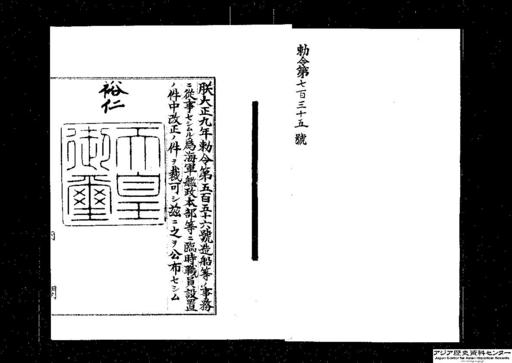 勅令第七百三十五號
朕大正九年勅令第五百五十六號造船等ノ事務
ニ從事セシムル爲海軍艦政本部等ニ臨時職員設置
ノ件中改正ノ件ヲ裁可シ茲ニ之ヲ公布セシム
裕仁
天皇
御璽
アジア歴史資料センター
Japan Center for Asian Historical Records